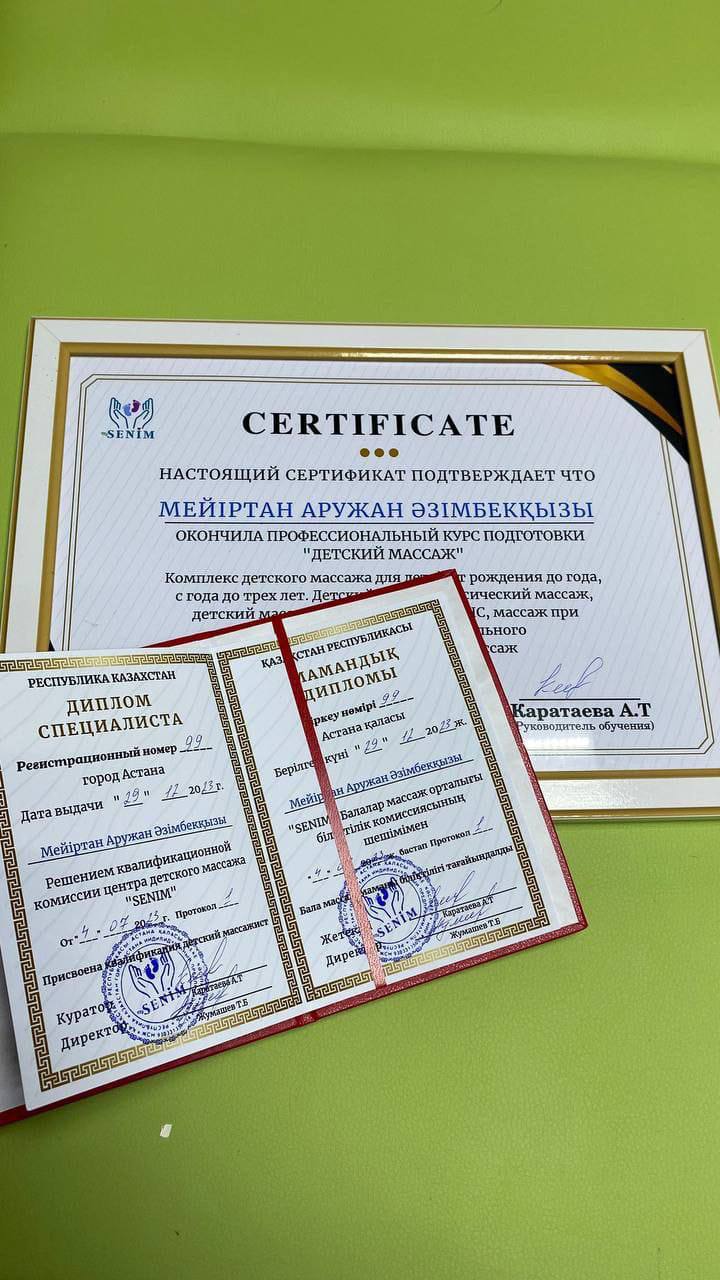 SENIM
CERTIFICATE
НАСТОЯЩИЙ СЕРТИФИКАТ ПОДТВЕРЖДАЕТ ЧТО
МЕЙІРТАН АРУЖАН ӘЗІМБЕКҚЫЗЫ
ОКОНЧИЛА ПРОФЕССИОНАЛЬНЫЙ КУРС ПОДГОТОВКИ
"ДЕТСКИЙ МАССАЖ"
Комплекс детского массажа для рождения до года,
с года до трех лет. массаж,
детский массаж при
Каратаева А.Т
(Руководитель обучения)
РЕСПУБЛИКА КАЗАХСТАН
ДИПЛОМ
СПЕЦИАЛИСТА
Регистрационный номер 99
город Астана
Дата выдачи "29" 12 2023 г.
Мейіртан Аружан Әзімбекқызы
Решением квалификационной
комиссии центра детского массажа
"SENIM"
От "4" 07 2023 г. Протокол 1
Присвоена квалификация детский массажист
Куратор Каратаева А.Т
Директор Жумашев Т.Б
SENIM
ҚАЗАҚСТАН РЕСПУБЛИКАСЫ
МАМАНДЫҚ
ДИПЛОМЫ
Тіркеу нөмірі 99
Астана қаласы
Берілген күні "29" 12 2023 ж.
Мейіртан Аружан Әзімбекқызы
"SENIM" Балалар массаж орталығы
біліктілік комиссиясының
шешімімен
"4" 2023 ж. бастап Протокол 1
Бала біліктілігі тағайындалды
Каратаева А.Т
Жумашев Т.Б
SENIM